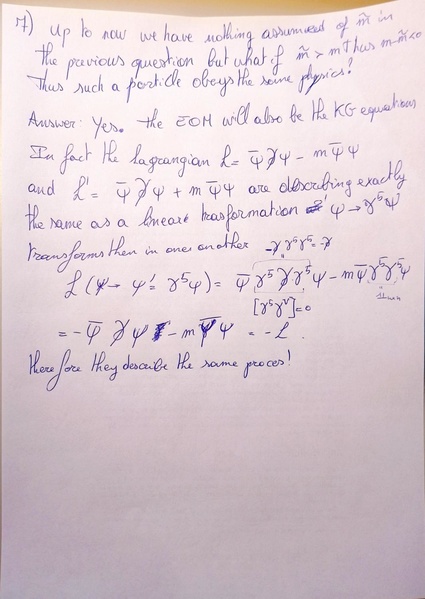 7) Up to now we have nothing assumed of m̃ in
the previous question but what if m̃ > m thus m-m̃<0
Thus such a particle obeys the same physics?
Answer: Yes. The EOM will also be the KG equations
In fact the lagrangian L = ψ̄ ∂̸ ψ - m ψ̄ ψ
and L' = ψ̄ ∂̸ ψ + m ψ̄ ψ are describing exactly
the same as a linear trasformation ψ → γ⁵ψ
transforms then in one another -∂̸ γ⁵γ⁵ = -∂̸
L(ψ → ψ' = γ⁵ψ) = ψ̄ γ⁵ ∂̸ γ⁵ ψ - m ψ̄ γ⁵γ⁵ψ
[γ⁵γᵛ]=0
= - ψ̄ ∂̸ ψ - m ψ̄ ψ = -L.
therefore they describe the same proces!